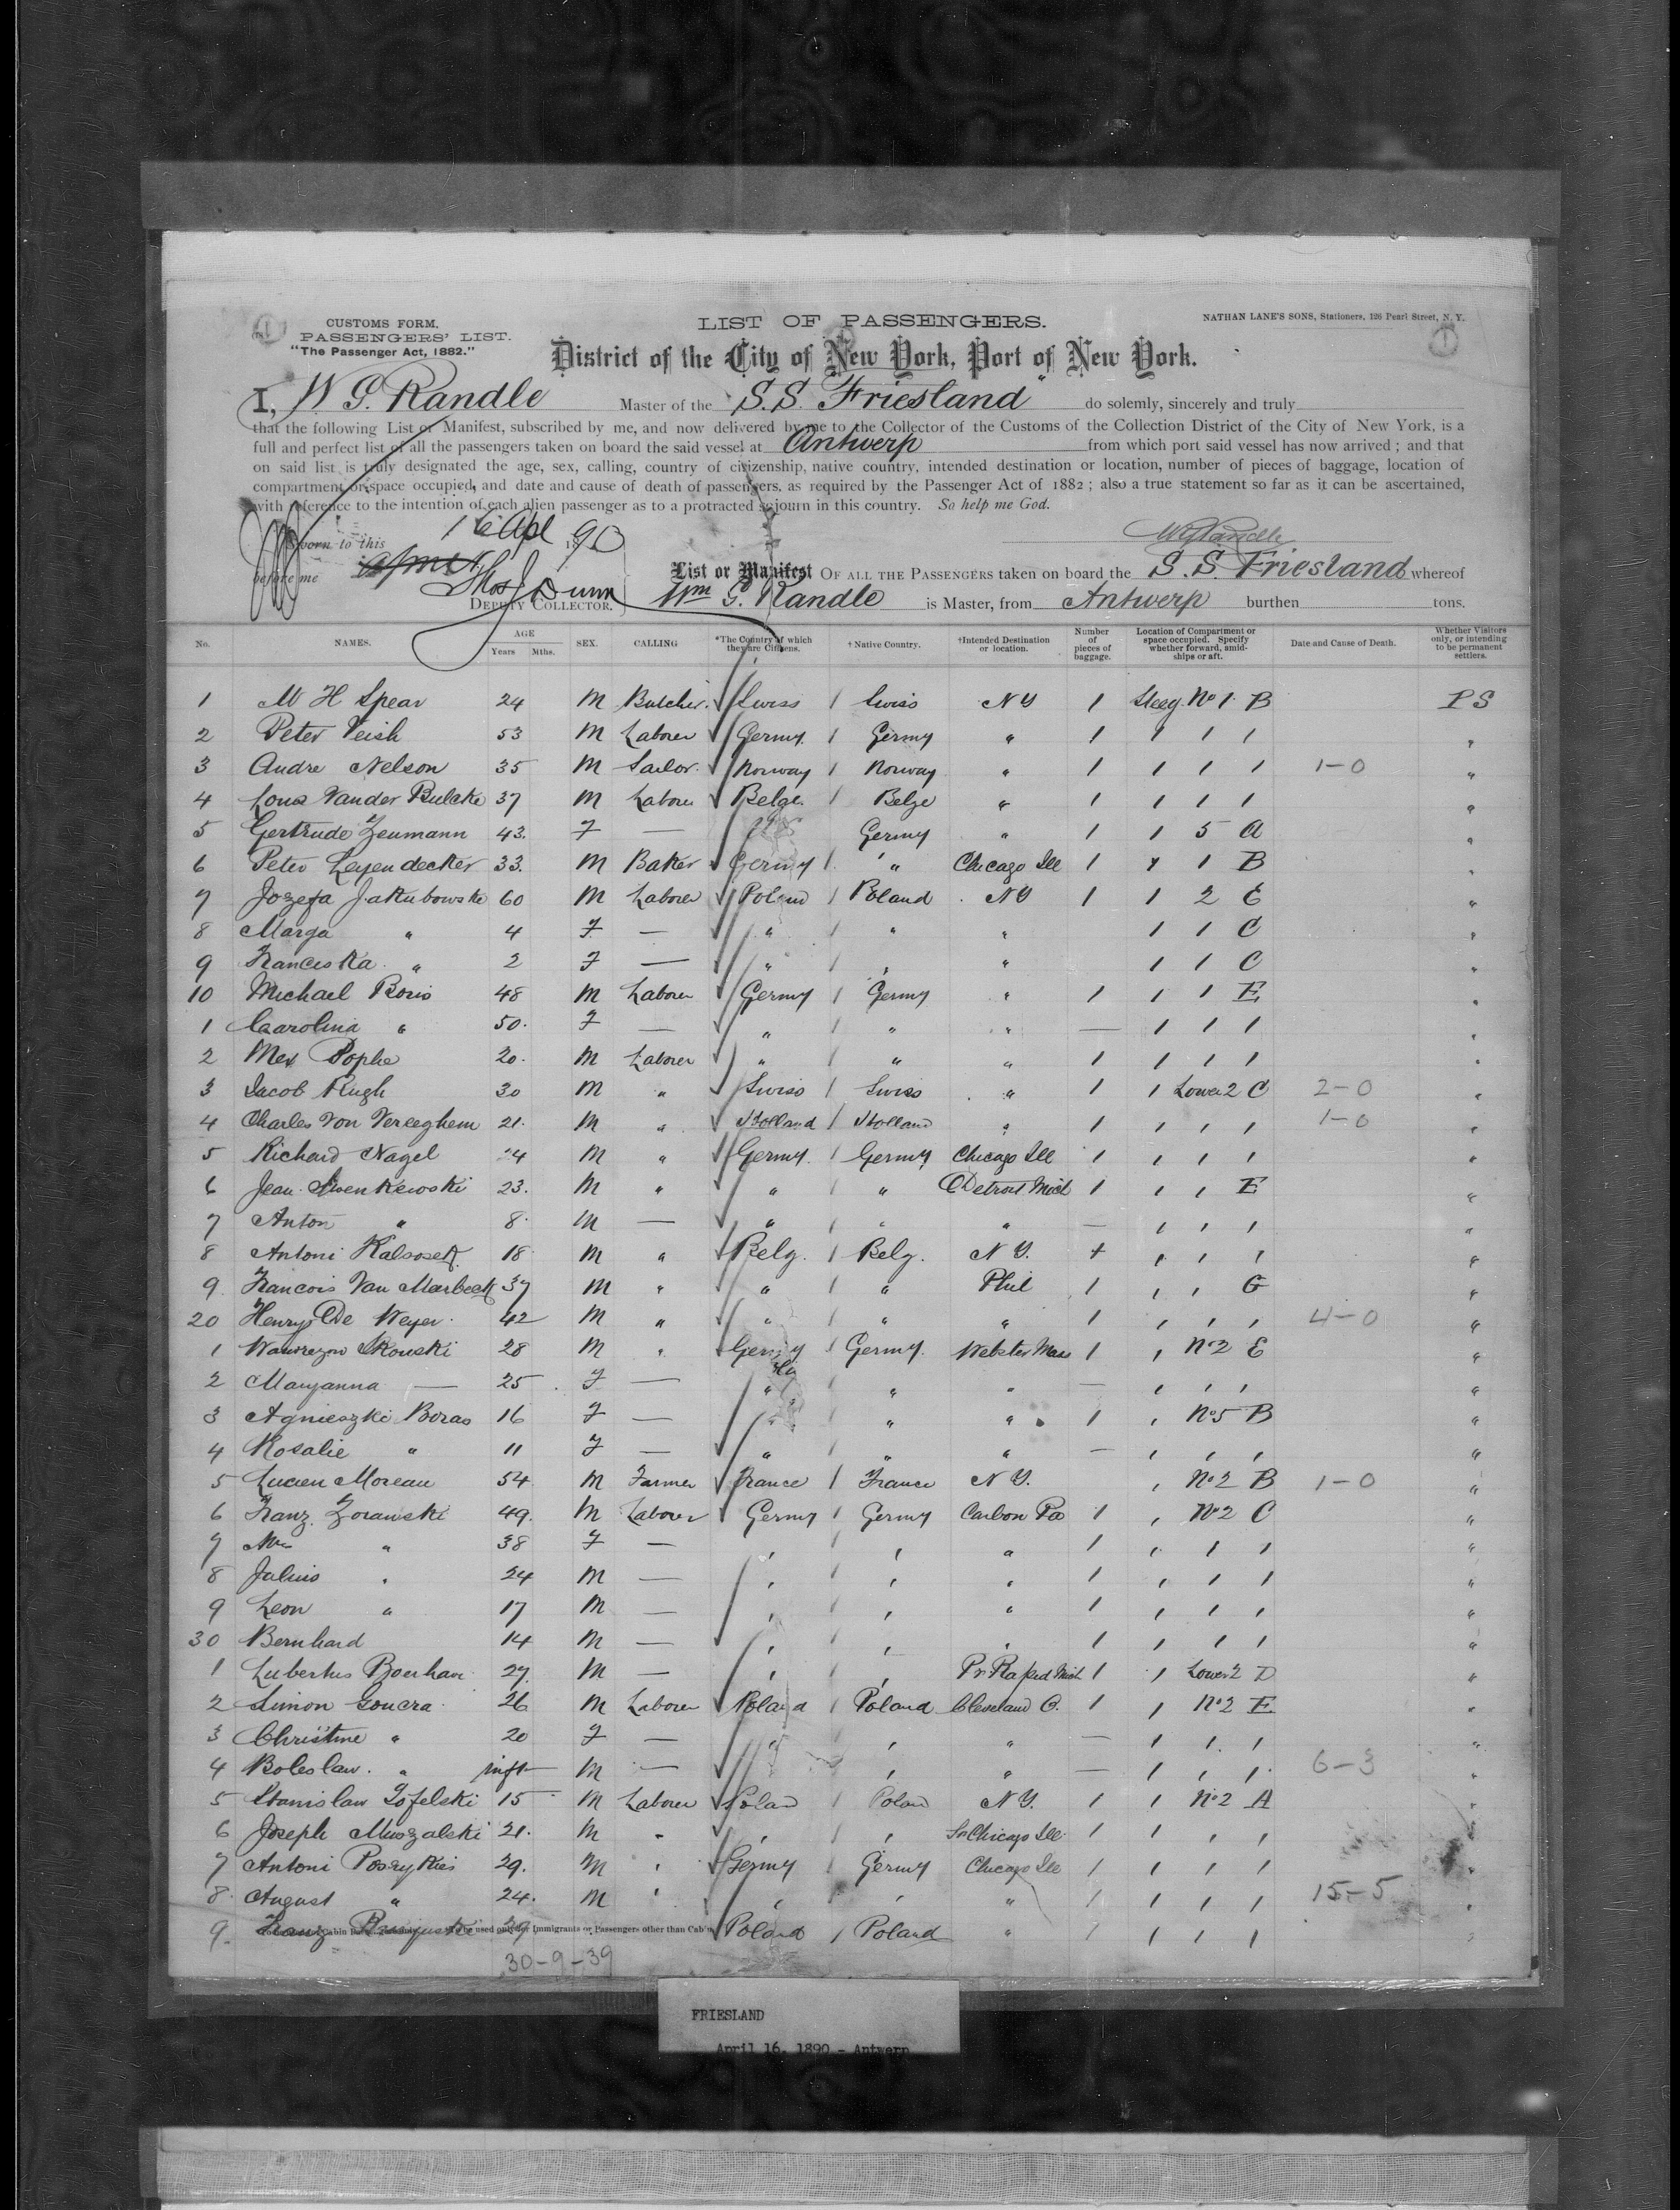 CUSTOMS FORM.
PASSENGERS' LIST.
"The Passenger Act, 1882."
LIST OF PASSENGERS.
NATHAN LANE'S SONS, Stationers, 126 Pearl Street, N. Y.
District of the City of New York, Port of New York.
I, W. G. Randle Master of the S.S. "Friesland" do solemnly, sincerely and truly
that the following List or Manifest, subscribed by me, and now delivered by me to the Collector of the Customs of the Collection District of the City of New York, is a
full and perfect list of all the passengers taken on board the said vessel at Antwerp from which port said vessel has now arrived ; and that
on said list is truly designated the age, sex, calling, country of citizenship, native country, intended destination or location, number of pieces of baggage, location of
compartment or space occupied, and date and cause of death of passengers, as required by the Passenger Act of 1882 ; also a true statement so far as it can be ascertained,
with reference to the intention of each alien passenger as to a protracted sojourn in this country. So help me God.
Sworn to this 16 Apl 1890
W G Randle
before me
Thos J Dunn
DEPUTY COLLECTOR.
List or Manifest OF ALL THE PASSENGERS taken on board the S. S. Friesland whereof
Wm G. Randle is Master, from Antwerp burthen tons.
No. NAMES. AGE Years Mths. SEX. CALLING *The Country of which they are Citizens. † Native Country. †Intended Destination or location. Number of pieces of baggage. Location of Compartment or space occupied. Specify whether forward, amidships or aft. Date and Cause of Death. Whether Visitors only, or intending to be permanent settlers.
1 M H Spear 24 M Butcher Swiss / Swiss N Y 1 Steeg. No 1. B P S
2 Peter 53 M Laborer Germy / Germy " 1 / / / "
3 Andre Nelson 35 M Sailor Norway / Norway " 1 / / / 1-0 "
4 Louis Vander Bulcke 37 M Laborer Belge / Belge " 1 / / / "
5 Gertrude Zeumann 43 F — / Germy " 1 / 5 A "
6 Peter Leyendecker 33 M Baker Germy / " Chicago Ill 1 / / B "
7 Jozefa Jakubowski 60 M Laborer Poland / Poland N Y 1 / 2 E "
8 Marga " 4 F — " / " " / / C "
9 Franciska " 2 F — " / " " / / C "
10 Michael Boris 48 M Laborer Germy / Germy " 1 / / E "
1 Carolina " 50 F — " / " " — / / / "
2 Max Pophe 20 M Laborer " / " " 1 / / / "
3 Jacob Rugh 30 M " Swiss / Swiss " 1 / Lower 2 C 2-0 "
4 Charles Von Vereeghem 21 M " Holland / Holland " 1 / / / 1-0 "
5 Richard Nagel 24 M " Germy / Germy Chicago Ill 1 / / / "
6 Jean 23 M " " / " Detroit Mich 1 / / E "
7 Anton " 8 M — " / " " — / / / "
8 Antoni 18 M " Belg. / Belg. N Y. + / / / "
9 Francois Van Marbeck 37 M " " / " Phil 1 / / G "
20 Henry De Weyer 42 M " " / " " 1 / / / 4-0 "
1 28 M " Germy / Germy Webster Mass 1 / No 2 E "
2 Maryanna — 25 F — " / " " — / / / "
3 Agnieszki Boras 16 F — " / " " 1 / No 5 B "
4 Rosalie " 11 F — " / " " — / / / "
5 Lucien Moreau 54 M Farmer France / France N Y. / No 2 B 1-0 "
6 Franz Zorawski 49 M Laborer Germy / Germy Carbon Pa 1 / No 2 C "
7 Mrs " 38 F — " / " " 1 / / / "
8 Julius " 24 M — " / " " 1 / / / "
9 Leon " 17 M — " / " " 1 / / / "
30 Bernhard 14 M — " / " " 1 / / / "
1 Lubertus 27 M — " / " 1 / Lower 2 D "
2 Simon Goucra 26 M Laborer Poland / Poland Cleveland O. 1 / No 2 E "
3 Christine " 20 F — " / " " — / / / "
4 Boleslaw " inft M — " " — / / / 6-3 "
5 Stanislaw 15 M Laborer Polan / Polan N Y. 1 / No 2 A "
6 Joseph Muszalski 21 M " " " Chicago Ill 1 / / / "
7 Antoni 29 M " Germy / Germy Chicago Ill 1 / / / "
8 August " 24 M " " / " " 1 / / / 15-5 "
9 Franz 29 Poland / Poland " 1 / / / "
used only for Immigrants or Passengers other than Cabin
30-9-39
FRIESLAND
April 16, 1890 - Antwerp